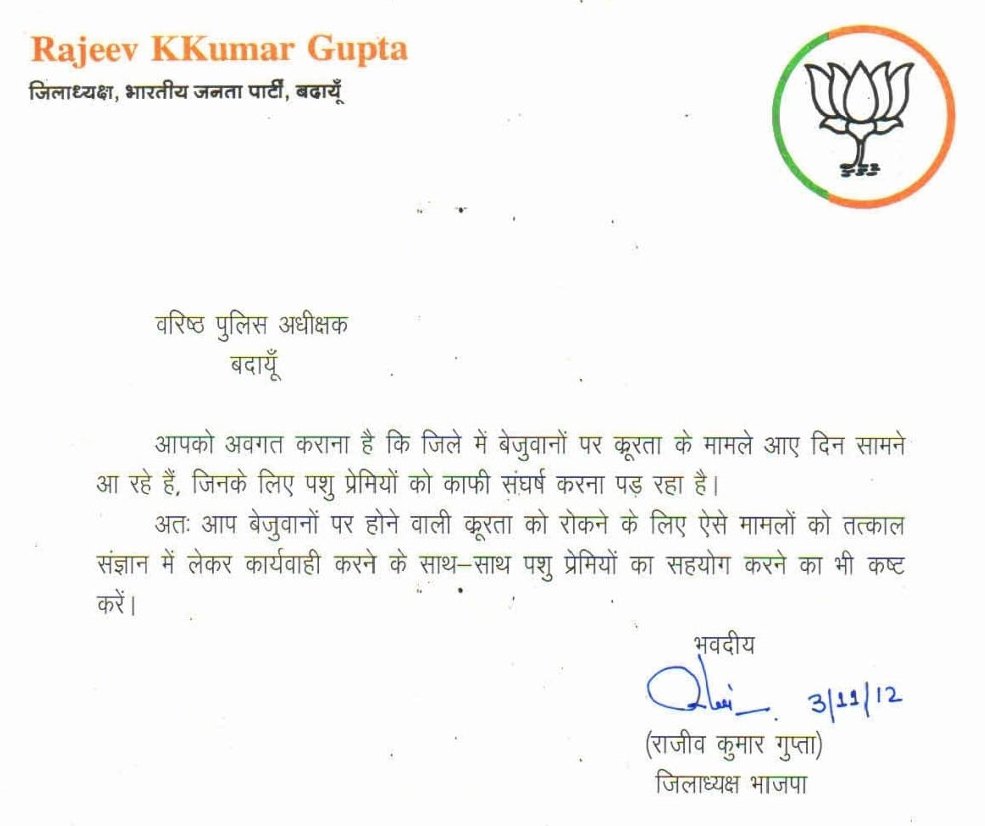 Rajeev KKumar Gupta
जिलाध्यक्ष, भारतीय जनता पार्टी, बदायूँ
वरिष्ठ पुलिस अधीक्षक
बदायूँ
आपको अवगत कराना है कि जिले में बेजुवानों पर क्रूरता के मामले आए दिन सामने
आ रहे हैं, जिनके लिए पशु प्रेमियों को काफी संघर्ष करना पड़ रहा है।
अतः आप बेजुवानों पर होने वाली क्रूरता को रोकने के लिए ऐसे मामलों को तत्काल
संज्ञान में लेकर कार्यवाही करने के साथ–साथ पशु प्रेमियों का सहयोग करने का भी कष्ट
करें।
भवदीय
3/11/12
(राजीव कुमार गुप्ता)
जिलाध्यक्ष भाजपा